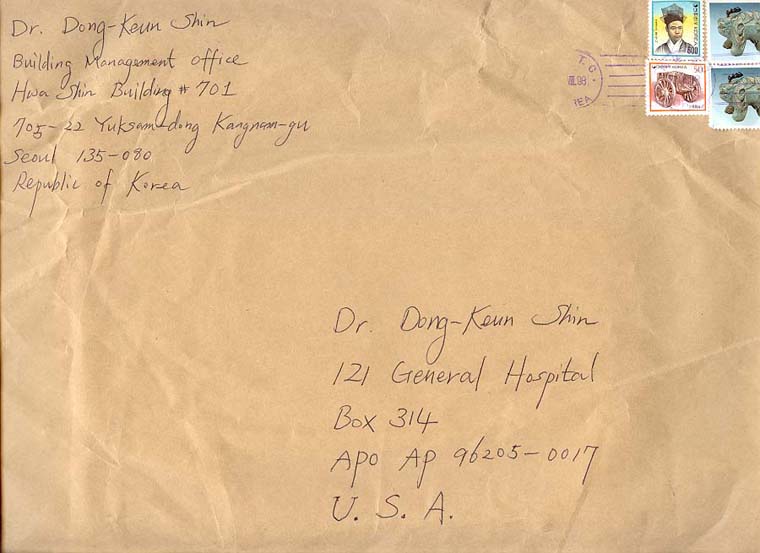 Dr. Dong-Keun Shin
Building Management office
Hwa Shin Building # 701
705-22 Yuksam-dong Kangnam-gu
Seoul 135-080
Republic of Korea
800
50
Dr. Dong-Keun Shin
121 General Hospital
Box 314
APO AP 96205-0017
U. S. A.